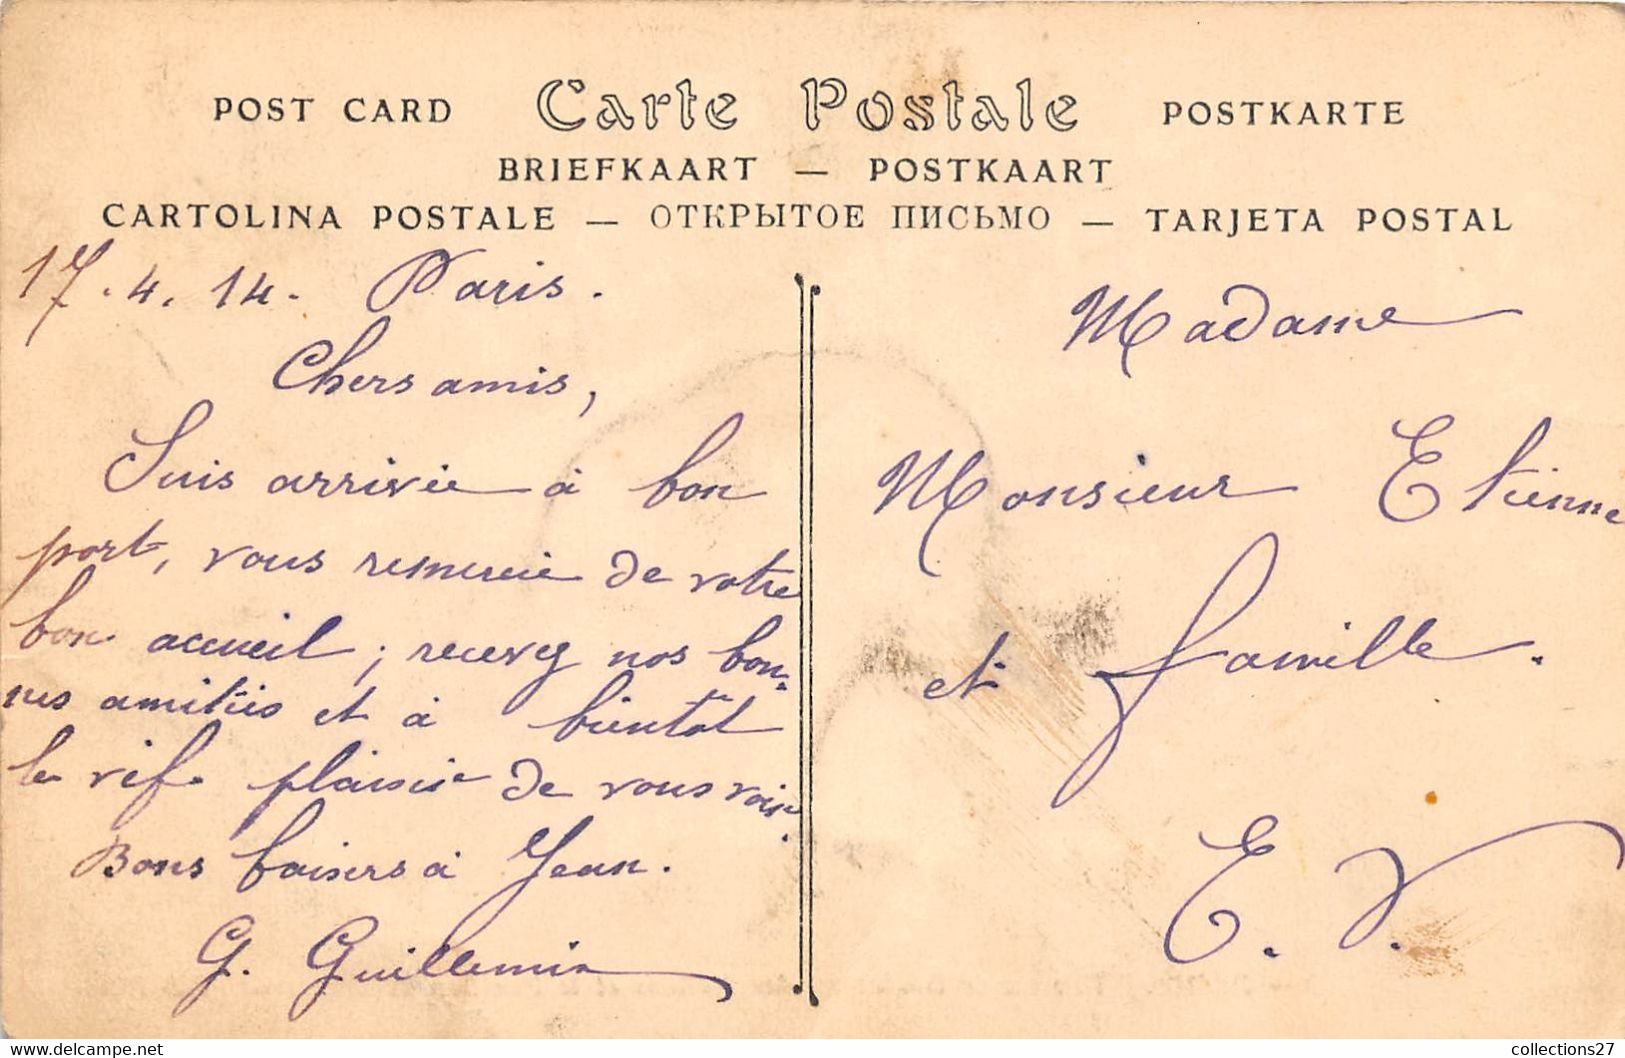 POST CARD Carte Postale POSTKARTE
BRIEFKAART — POSTKAART
CARTOLINA POSTALE — ОТКРЫТОЕ ПИСЬМО — TARJETA POSTAL
17.4.14. Paris.
Chers amis,
Suis arrivée à bon
port, vous remercie de votre
bon accueil ; recevez nos bon-
nes amitiés et à bientôt
le vif plaisir de vous voir.
Bons baisers à Jean.
G. Guillemin
Madame
Monsieur Etienne
et famille.
E. V.
collections27